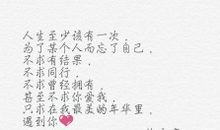 人生至少该有一次，
为了某个人而忘了自己，
不求有结果，
不求同行，
不求曾经拥有，
甚至不求你爱我，
只求在我最美的年华里，
遇到你